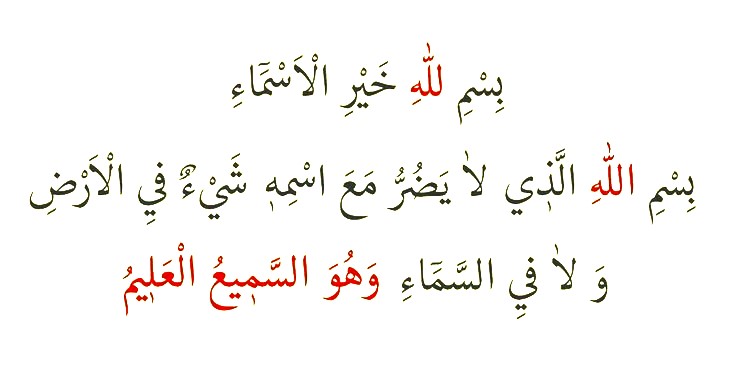 بِسْمِ للّٰهِ خَيْرِ الْاَسْمَٓاءِ
بِسْمِ اللّٰهِ الَّذ۪ي لاٰ يَضُرُّ مَعَ اسْمِه۪ شَيْءٌ فِي الْاَرْضِ
وَ لاٰ فِي السَّمَٓاءِ وَهُوَ السَّم۪يعُ الْعَل۪يمُ